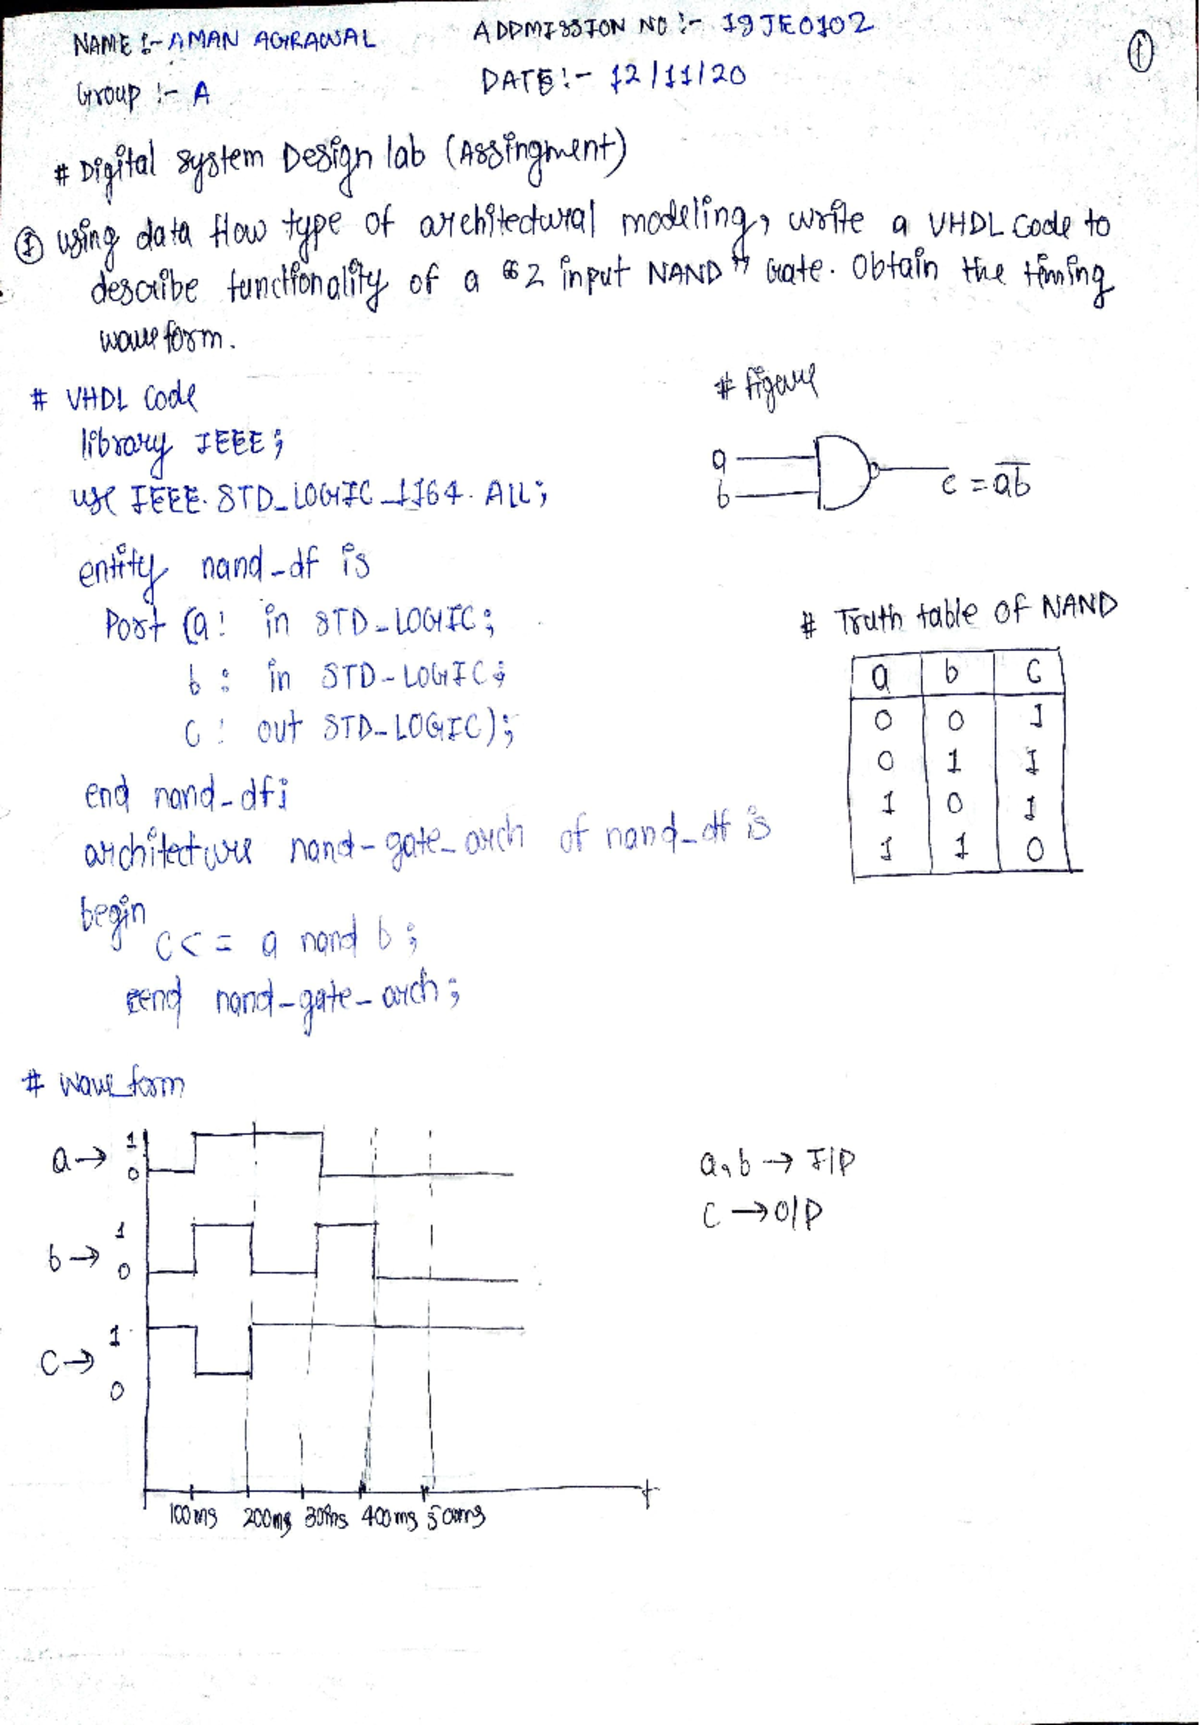 NAME :- AMAN AGRAWAL
ADDMISSION NO :- 19JE0102
①
Group :- A
DATE :- 12/11/20
# Digital system Design lab (Assingment)
① using data flow type of architectural modeling, write a VHDL Code to
describe functionality of a "2 input NAND" Gate. Obtain the timing
waveform.
# VHDL Code
# figure
library IEEE;
a
b
c = \overline{ab}
use IEEE.STD_LOGIC_1164.ALL;
entity nand_df is
Port (a : in STD_LOGIC;
b : in STD_LOGIC;
c : out STD_LOGIC);
# Truth table of NAND
a b C
0 0 1
0 1 1
1 0 1
1 1 0
end nand_df;
architecture nand-gate_arch of nand_df is
begin
c <= a nand b;
end nand-gate-arch;
# Wave form
a → 1
0
b → 1
0
C → 1
0
a, b → I/P
C → O/P
100ms 200ms 300ms 400ms 500ms
t